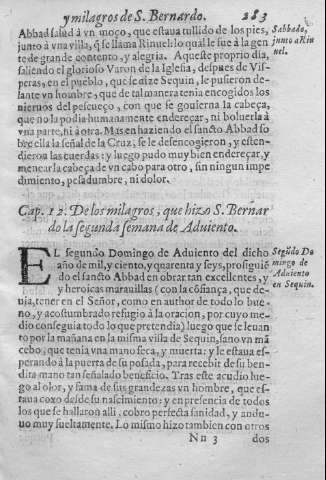 y milagros de S. Bernardo. 283
Abbad salud à vn moço, que estaua tullido de los pies,
junto à vna villa, q̃ se llama Rinuel; lo qual le fue à la gen
te de grande contento, y alegria. Aqueste proprio dia,
saliendo el glorioso Varon de la Iglesia, despues de Vis-
peras, en el pueblo, que se dize Sequin, le pusieron de-
lante vn hombre, que de tal manera tenia encogidos los
nieruos del pescueço, con que se gouierna la cabeça,
que no la podia humanamente endereçar, ni boluerla à
vna parte, ni à otra. Mas en haziendo el sancto Abbad so
bre ella la señal de la Cruz, se le desencogieron, y esten-
dieron las cuerdas: y luego pudo muy bien endereçar, y
menear la cabeça de vn cabo para otro, sin ningun impe
dimiento, pesadumbre, ni dolor.
Sabbado,
junto a Ri
nuel.
Cap. 12. De los milagros, que hizo S. Bernar
do la segunda semana de Aduiento.
EL segundo Domingo de Aduiento del dicho
año de mil, y ciento, y quarenta y seys, prosiguiẽ
do el sancto Abbad en obrar tan excellentes, y
y heroicas marauillas (con la cõfiança, que de-
uia, tener en el Señor, como en author de todo lo bue-
no, y acostumbrado refugio à la oracion, por cuyo me-
dio conseguia todo lo que pretendia) luego que se leuan
to por la mañana en la misma villa de Sequin, sano vn mã
cebo, que tenia vna mano seca, y muerta: y le estaua es-
perando à la puerta de su posada, para recebir de su ben-
dita mano tan señalado beneficio. Tras este acudio lue-
go al olor, y fama de sus grandezas vn hombre, que es-
taua coxo desde su nascimiento: y en presencia de todos
los que se hallaron alli, cobro perfecta sanidad, y andu-
uo muy sueltamente. Lo mismo hizo tambien con otros
Segũdo Do
mingo de
Aduiento
en Sequin.
Nn 3 dos